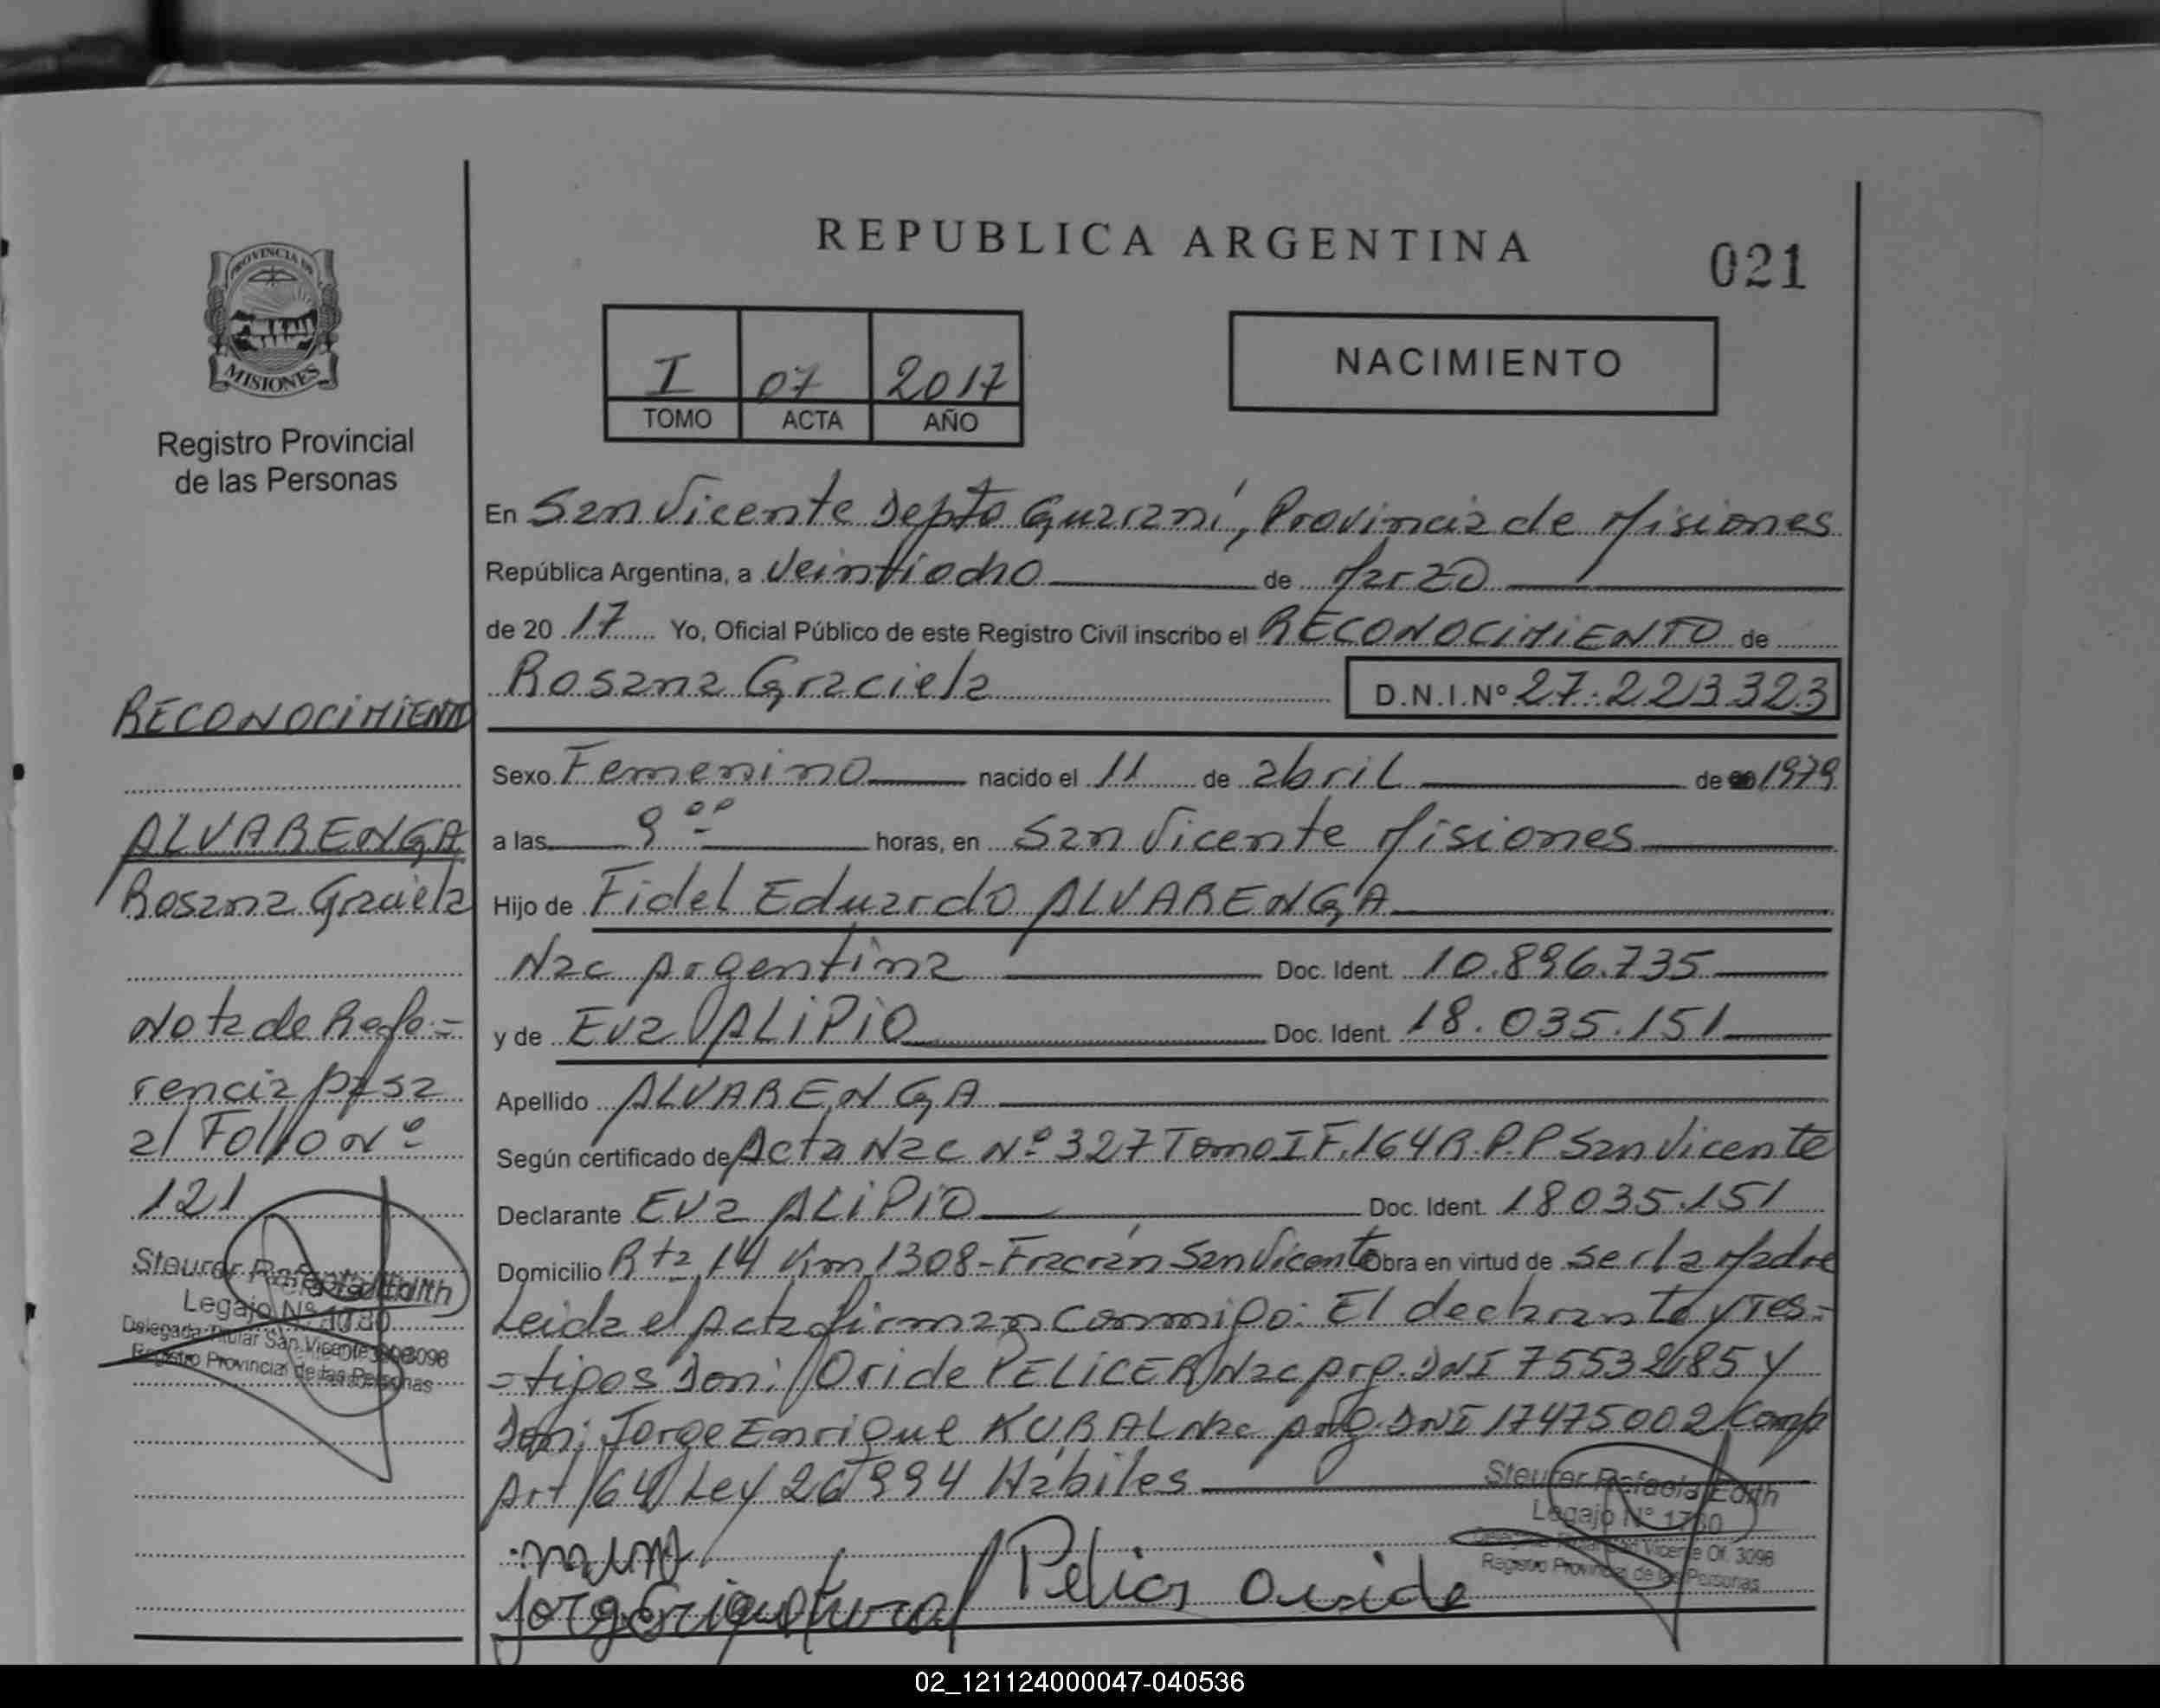 REPUBLICA ARGENTINA
021
PROVINCIA DE
MISIONES
Registro Provincial
de las Personas
I 07 2017
TOMO ACTA AÑO
NACIMIENTO
En San Vicente Depto Guaraní, Provincia de Misiones
República Argentina, a Veintiocho de Marzo
de 20 17 Yo, Oficial Público de este Registro Civil inscribo el RECONOCIMIENTO de
Rosana Graciela D.N.I.Nº 27.223.323
Sexo Femenino nacido el 11 de abril de 1979
a las 9 00 horas, en San Vicente Misiones
Hijo de Fidel Eduardo ALVARENGA
Nac Argentina Doc. Ident. 10.896.735
y de Eva ALIPIO Doc. Ident. 18.035.151
Apellido ALVARENGA
Según certificado de Acta Nac Nº 327 Tomo I F.164 R.P.P San Vicente
Declarante Eva ALIPIO Doc. Ident. 18035.151
Domicilio Rta 14 Km 1308-Fracrán San Vicente Obra en virtud de ser la Madre
Leida el Acta firman conmigo: El declarante y Tes=
=tigos Don: Oride PELICER Nac Arg. DNI y
Don: Jorge Enrique KURAL Nac Arg. DNI 17475002 Comp
Art 64 Ley 26994 Hábiles
Pelicer Oride
Steurer Rafaela Edith
Legajo Nº 1730
Delegada Titular San Vicente Of. 3098
Registro Provincial de las Personas
RECONOCIMIENTO
ALVARENGA
Rosana Graciela
Nota de Refe=
rencia pasa
al Folio Nº
121
Steurer Rafaela Edith
Legajo Nº 1730
Delegada Titular San Vicente Of. 3098
Registro Provincial de las Personas
02_121124000047-040536